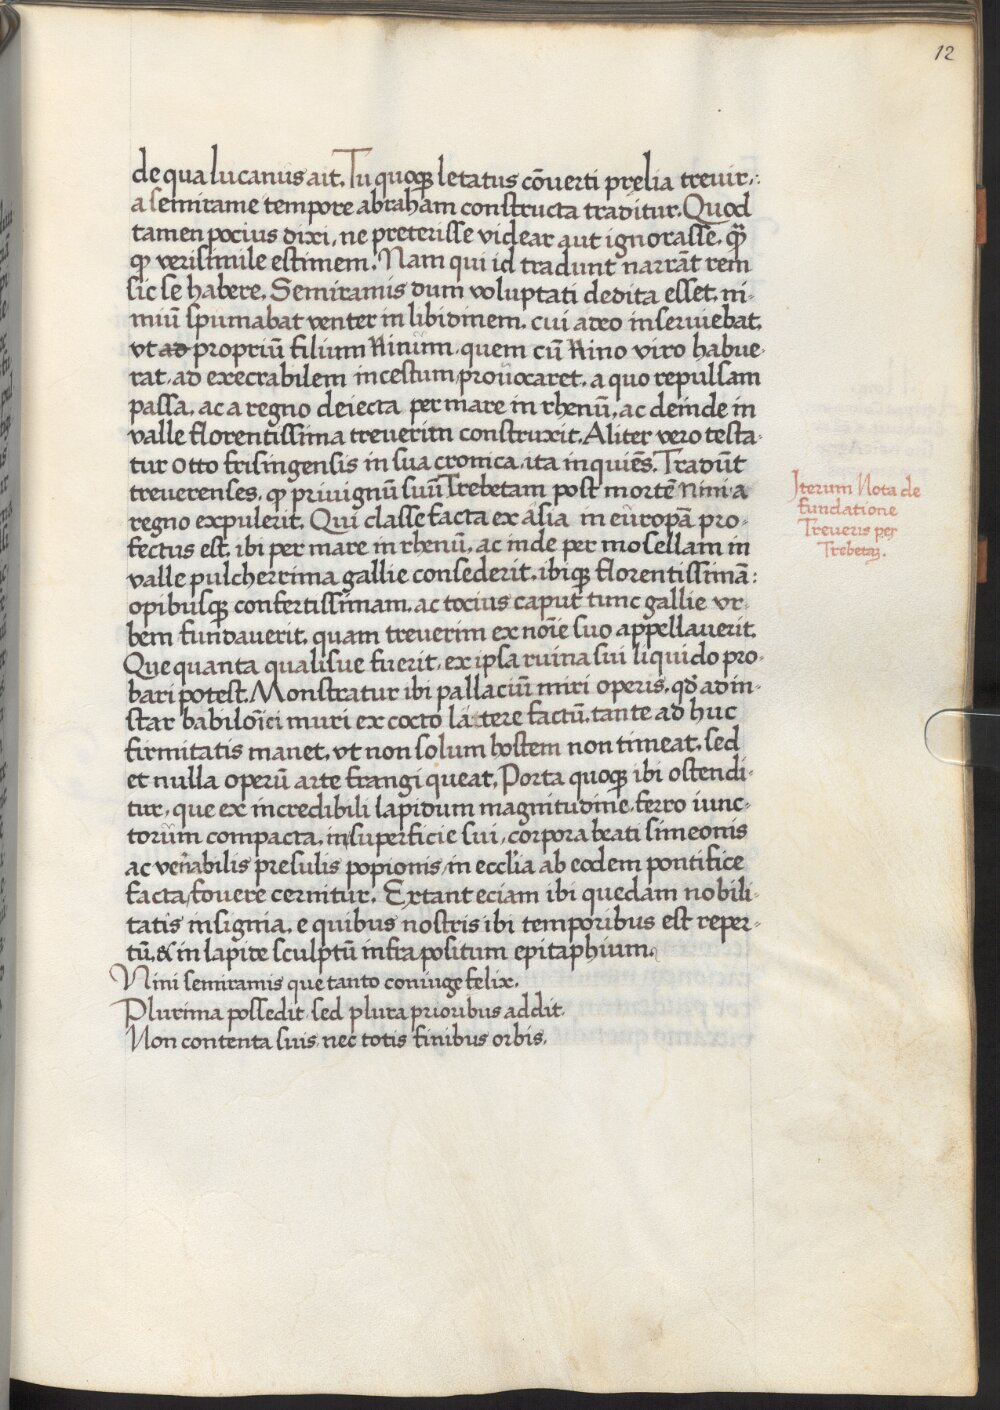 12
de qua lucanus ait. Tu quoqȝ letatus cōuerti prelia treuir.:
a semirame tempore abraham constructa traditur. Quod
tamen pocius dixi, ne preterisse videar aut ignorasse, qȝ̄
qp verisimile estimem. Nam qui id tradunt narrāt rem
sic se habere. Semiramis dum voluptati dedita esset, ni-
miū spumabat venter in libidinem, cui adeo inseruiebat,
vt ad propriū filium Ninum, quem cū Nino viro habue-
rat, ad execrabilem incestum prouocaret, a quo repulsam
passa, ac a regno deiecta per mare in rhenū, ac deinde in
valle florentissima treuerim construxit. Aliter vero testa-
tur Otto frisingensis in sua cronica, ita inquiēs. Tradūt
treuerenses, qp priuignū suū Trebetam post mortē Nini a
regno expulerit. Qui classe facta ex asia in europā pro-
fectus est, ibi per mare in rhenū, ac inde per mosellam in
valle pulcherrima gallie consederit, ibiqȝ florentissimā:
opibusqȝ confertissimam, ac tocius caput tunc gallie vr-
bem fundauerit, quam treuerim ex noīe suo appellauerit.
Que quanta qualisue fuerit, ex ipsa ruina sui liquido pro-
bari potest. Monstratur ibi pallaciū miri operis, qd̄ ad in-
star babiloīci muri ex cocto lattere factū, tante ad huc
firmitatis manet, vt non solum hostem non timeat, sed
et nulla operū arte frangi queat. Porta quoqȝ ibi ostendi-
tur, que ex incredibili lapidum magnitudine, ferro iunc-
torum compacta, in superficie sui, corpora beati simeonis
ac ven̄abilis presulis popionis, in eccl'ia ab eodem pontifice
facta, fouere cernitur. Extant eciam ibi quedam nobili-
tatis insignia, e quibus nostris ibi temporibus est reper-
tū, & in lapide sculptū infra positum epitaphium.
Nini semiramis que tanto coniuge felix.
Plurima possedit, sed plura prioribus addit.
Non contenta suis, nec totis finibus orbis.
Iterum Nota de
fundatione
Treueris per
Trebetaȝ.